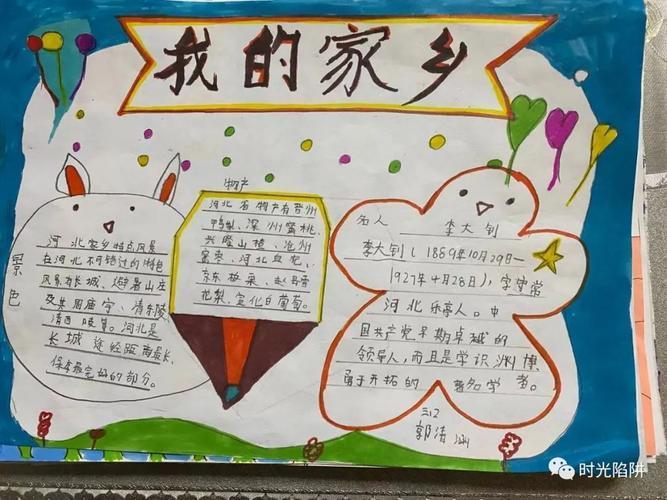 我的家乡
景色
河北家乡特点风景
在河北不错过的特色
风景有长城、避暑山庄
及其周庙宁、清东陵
清西陵等。河北是
长城途经距离最长、
保存最完好的部分。
物产
河北名物产有晋州
鸭梨、深州蜜桃、
兴隆山楂、沧州
金枣、河北血皂、
京东板栗、赵县雪
花梨、宣化白葡萄。
名人
李大钊
李大钊(1889年10月29日—
1927年4月28日),字守常
河北乐亭人。中
国共产党早期卓越的
领导人,而且是学识渊博
勇于开拓的著名学者。
三12
郭洁涵
时光陷阱